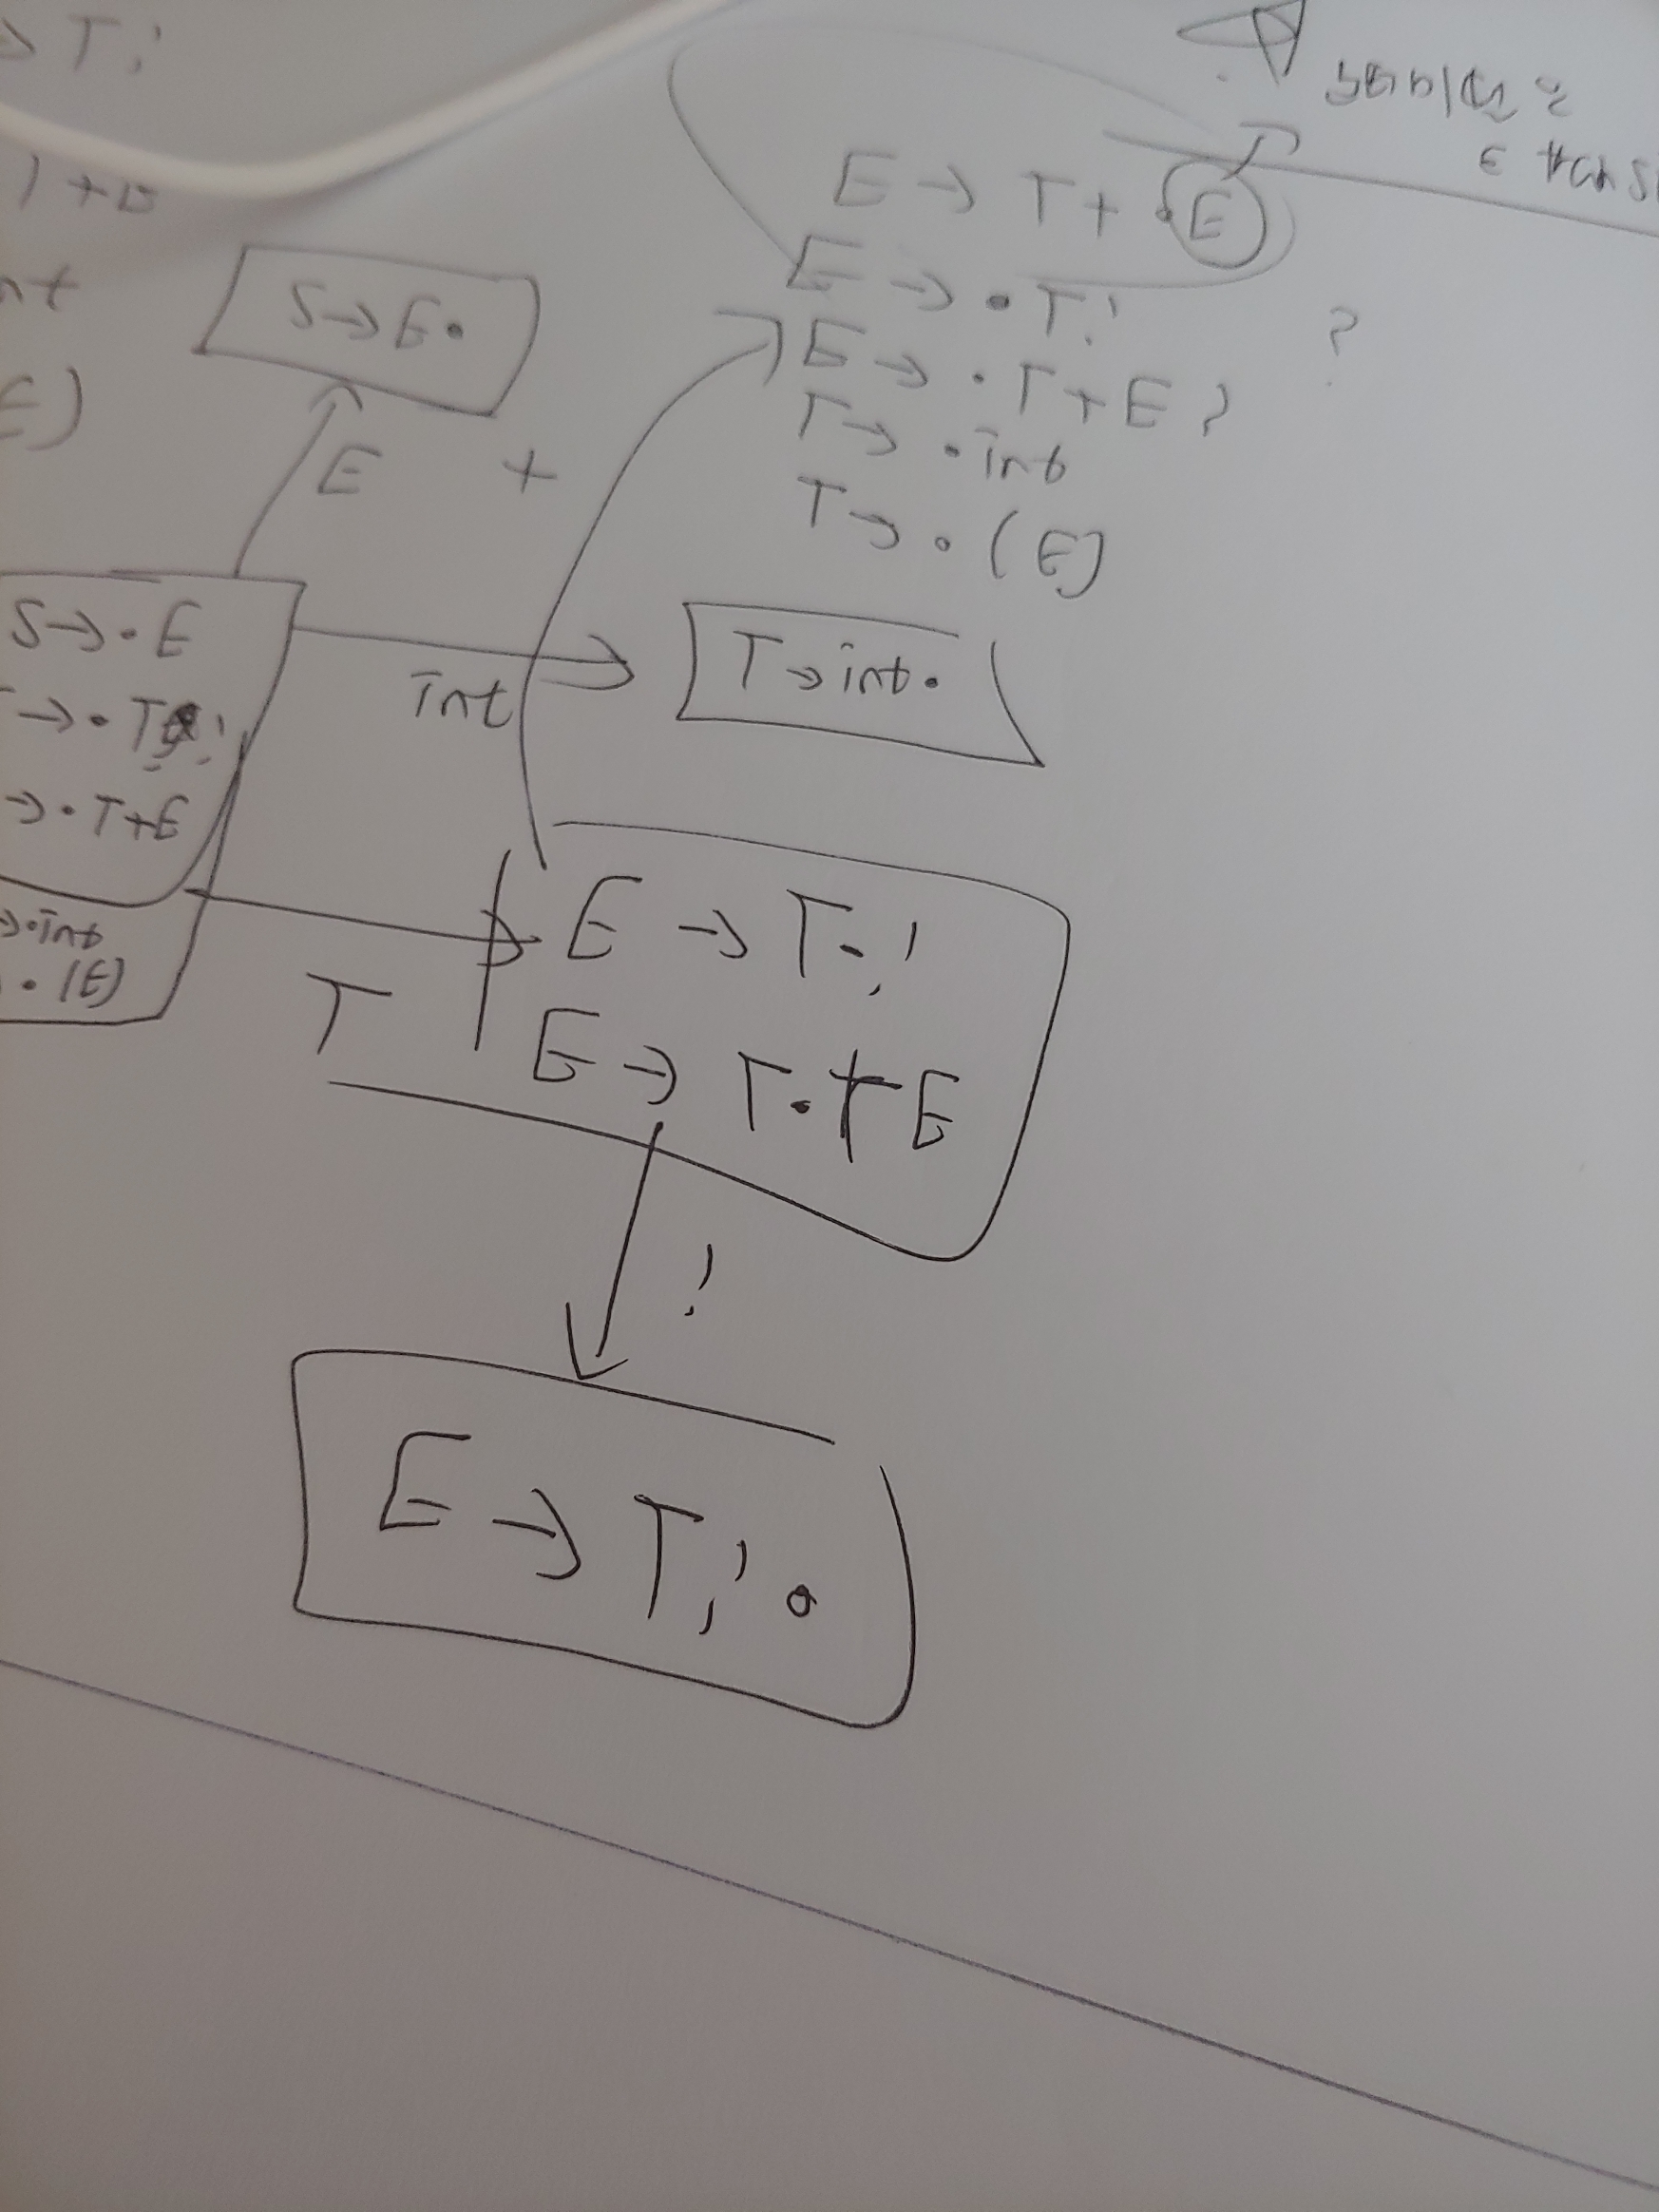 → T;
) + E
nt
E)
E → T + •E
E → • T;
E → • T + E ?
?
T → • int
T → • (E)
S → E •
E
+
S → • E
→ • T;
→ • T + E
→ • int
• (E)
int
T → int •
T
E → T • ;
E → T • + E
;
E → T ; •